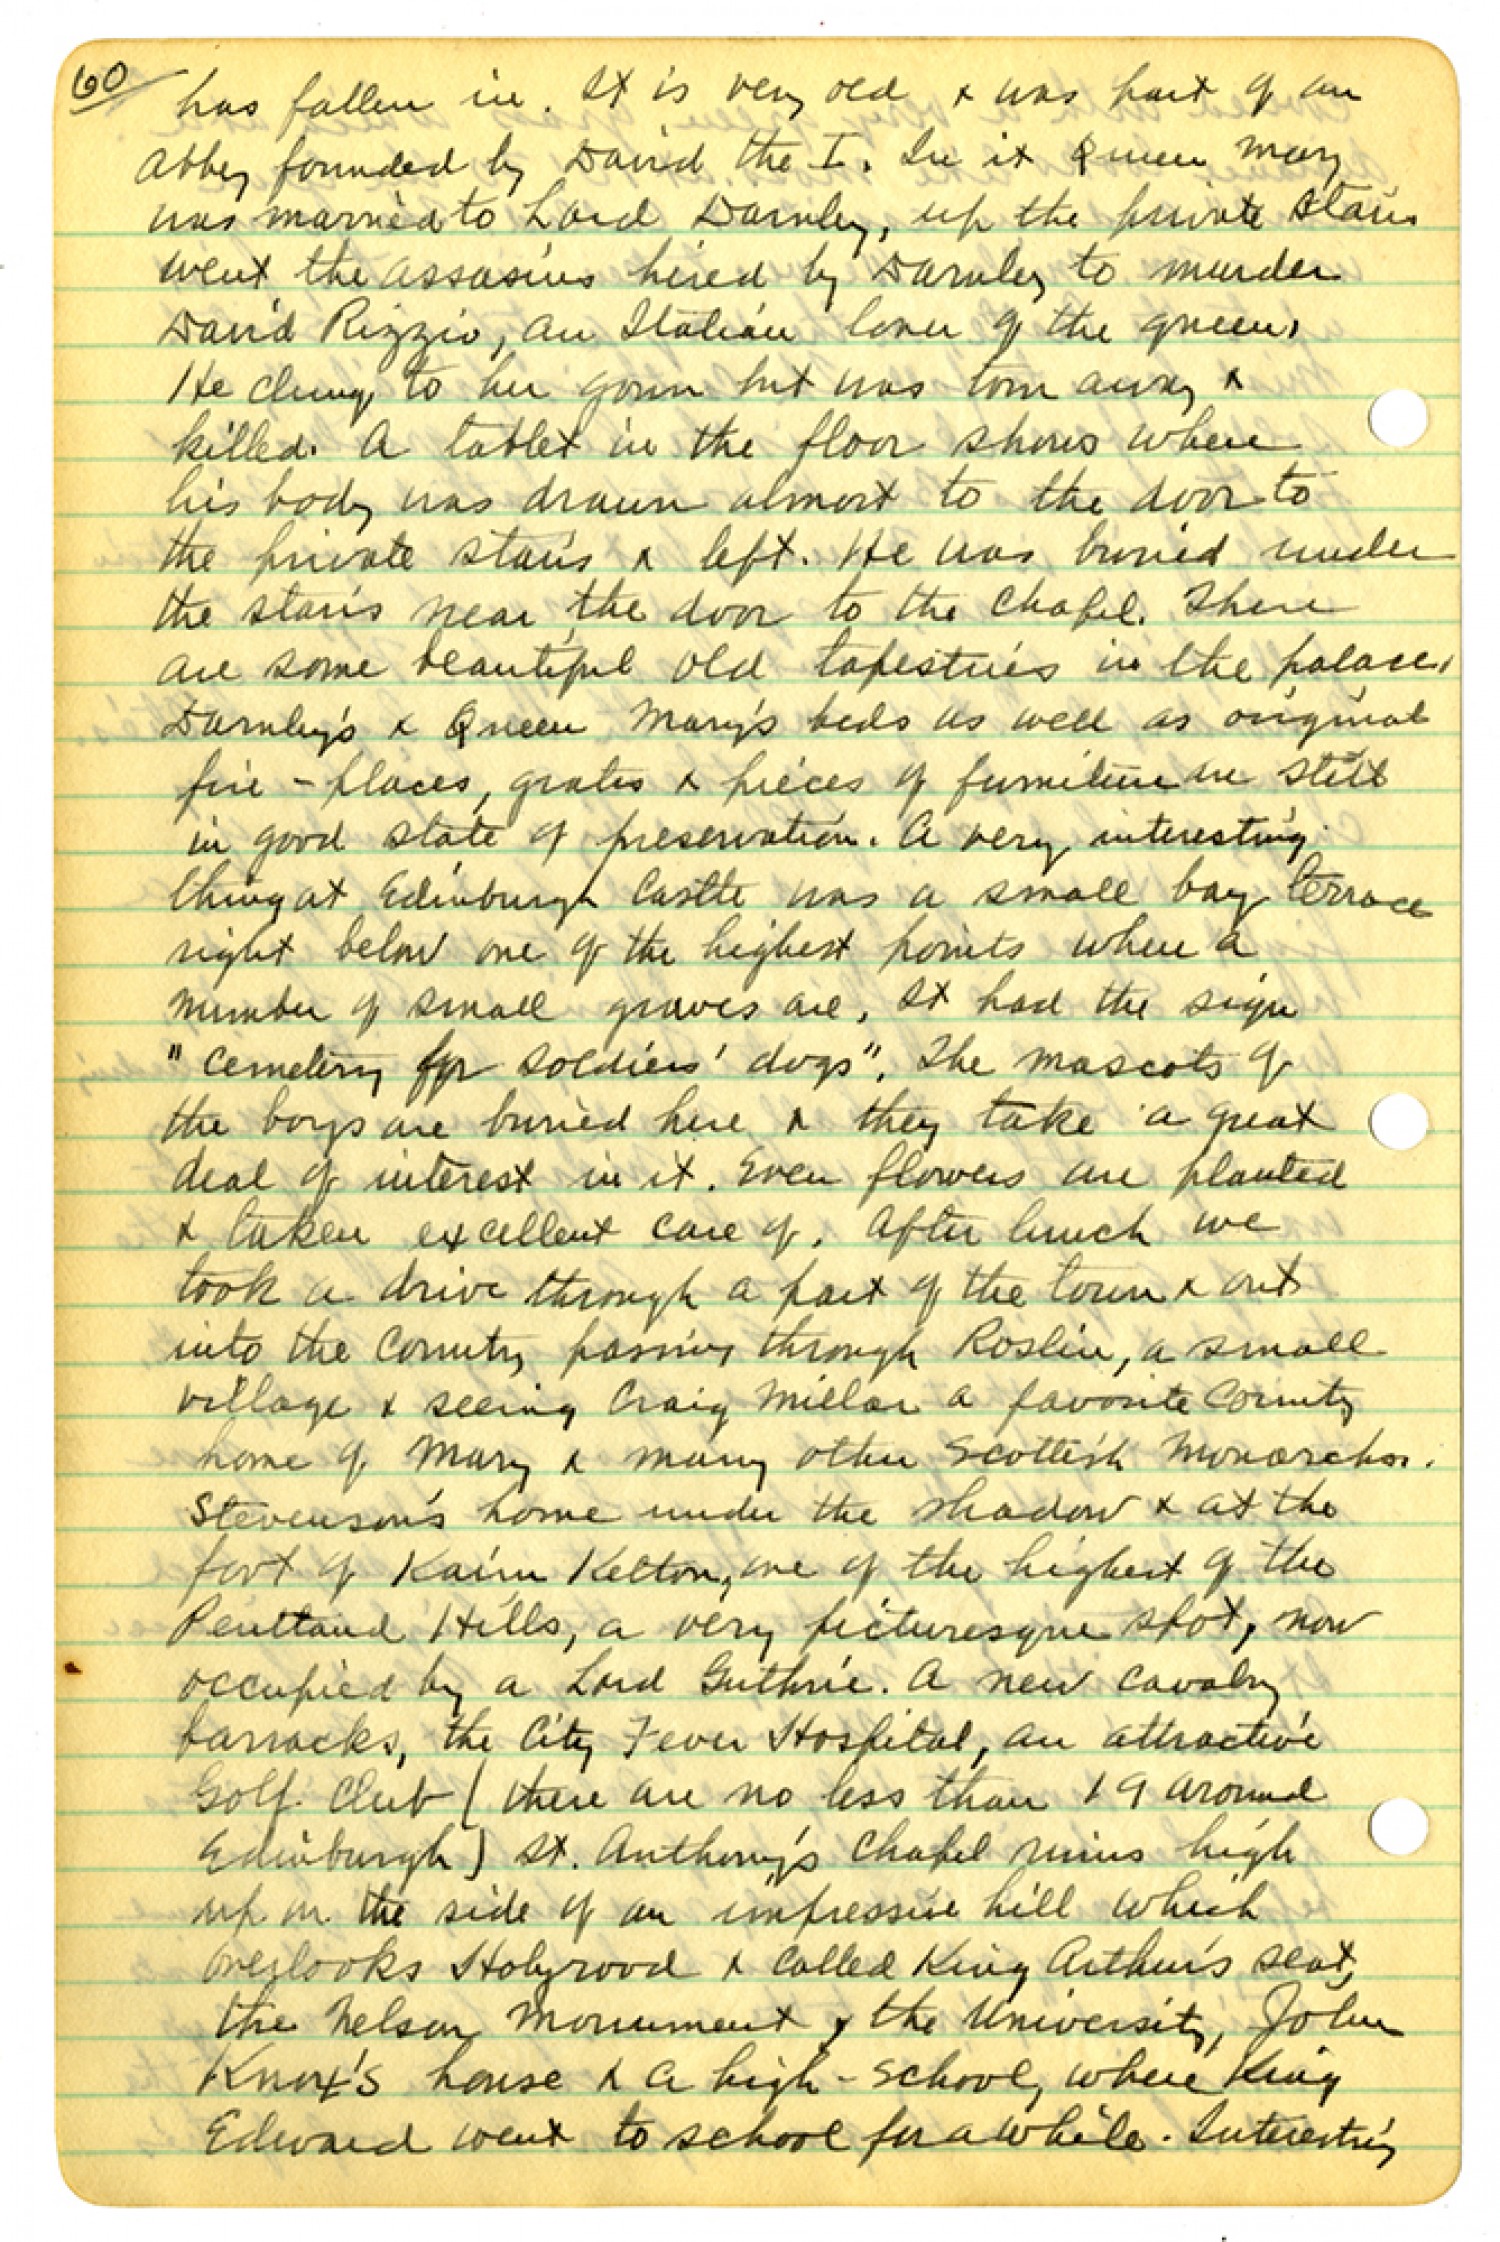 60
has fallen in. It is very old & was part of an
Abbey founded by David the I. In it Queen Mary
was married to Lord Darnley, up the private stairs
went the assasins hired by Darnley to murder
David Rizzio, an Italian lover of the queen.
He clung to her gown but was torn away &
killed. A tablet in the floor shows where
his body was drawn almost to the door to
the private stairs & left. He was buried under
the stairs near the door to the chapel. There
are some beautiful old tapestries in the palace.
Darnley's & Queen Mary's beds as well as original
fire-places, grates & pieces of furniture are still
in good state of preservation. A very interesting
thing at Edinburgh Castle was a small bay terrace
right below one of the highest points where a
number of small graves are. It had the sign
"Cemetery for soldiers' dogs". The mascots of
the boys are buried here & they take a great
deal of interest in it. Even flowers are planted
& taken excellent care of. After lunch we
took a drive through a part of the town & out
into the country passing through Roslin, a small
village & seeing Craig Millar a favorite country
home of Mary & many other Scottish Monarchs.
Stevenson's home under the shadow & at the
foot of Kairn Kelton, one of the highest of the
Pentland Hills, a very picturesque spot, now
occupied by a Lord Guthrie. A new cavalry
barracks, the City Fever Hospital, an attractive
Golf Club (there are no less than 19 around
Edinburgh) St. Anthony's Chapel ruins high
up on the side of an impressive hill which
overlooks Holyrood & called King Arthur's seat,
the Nelson Monument, the University, John
Knox's house & a high-school, where King
Edward went to school for a while. Interesting